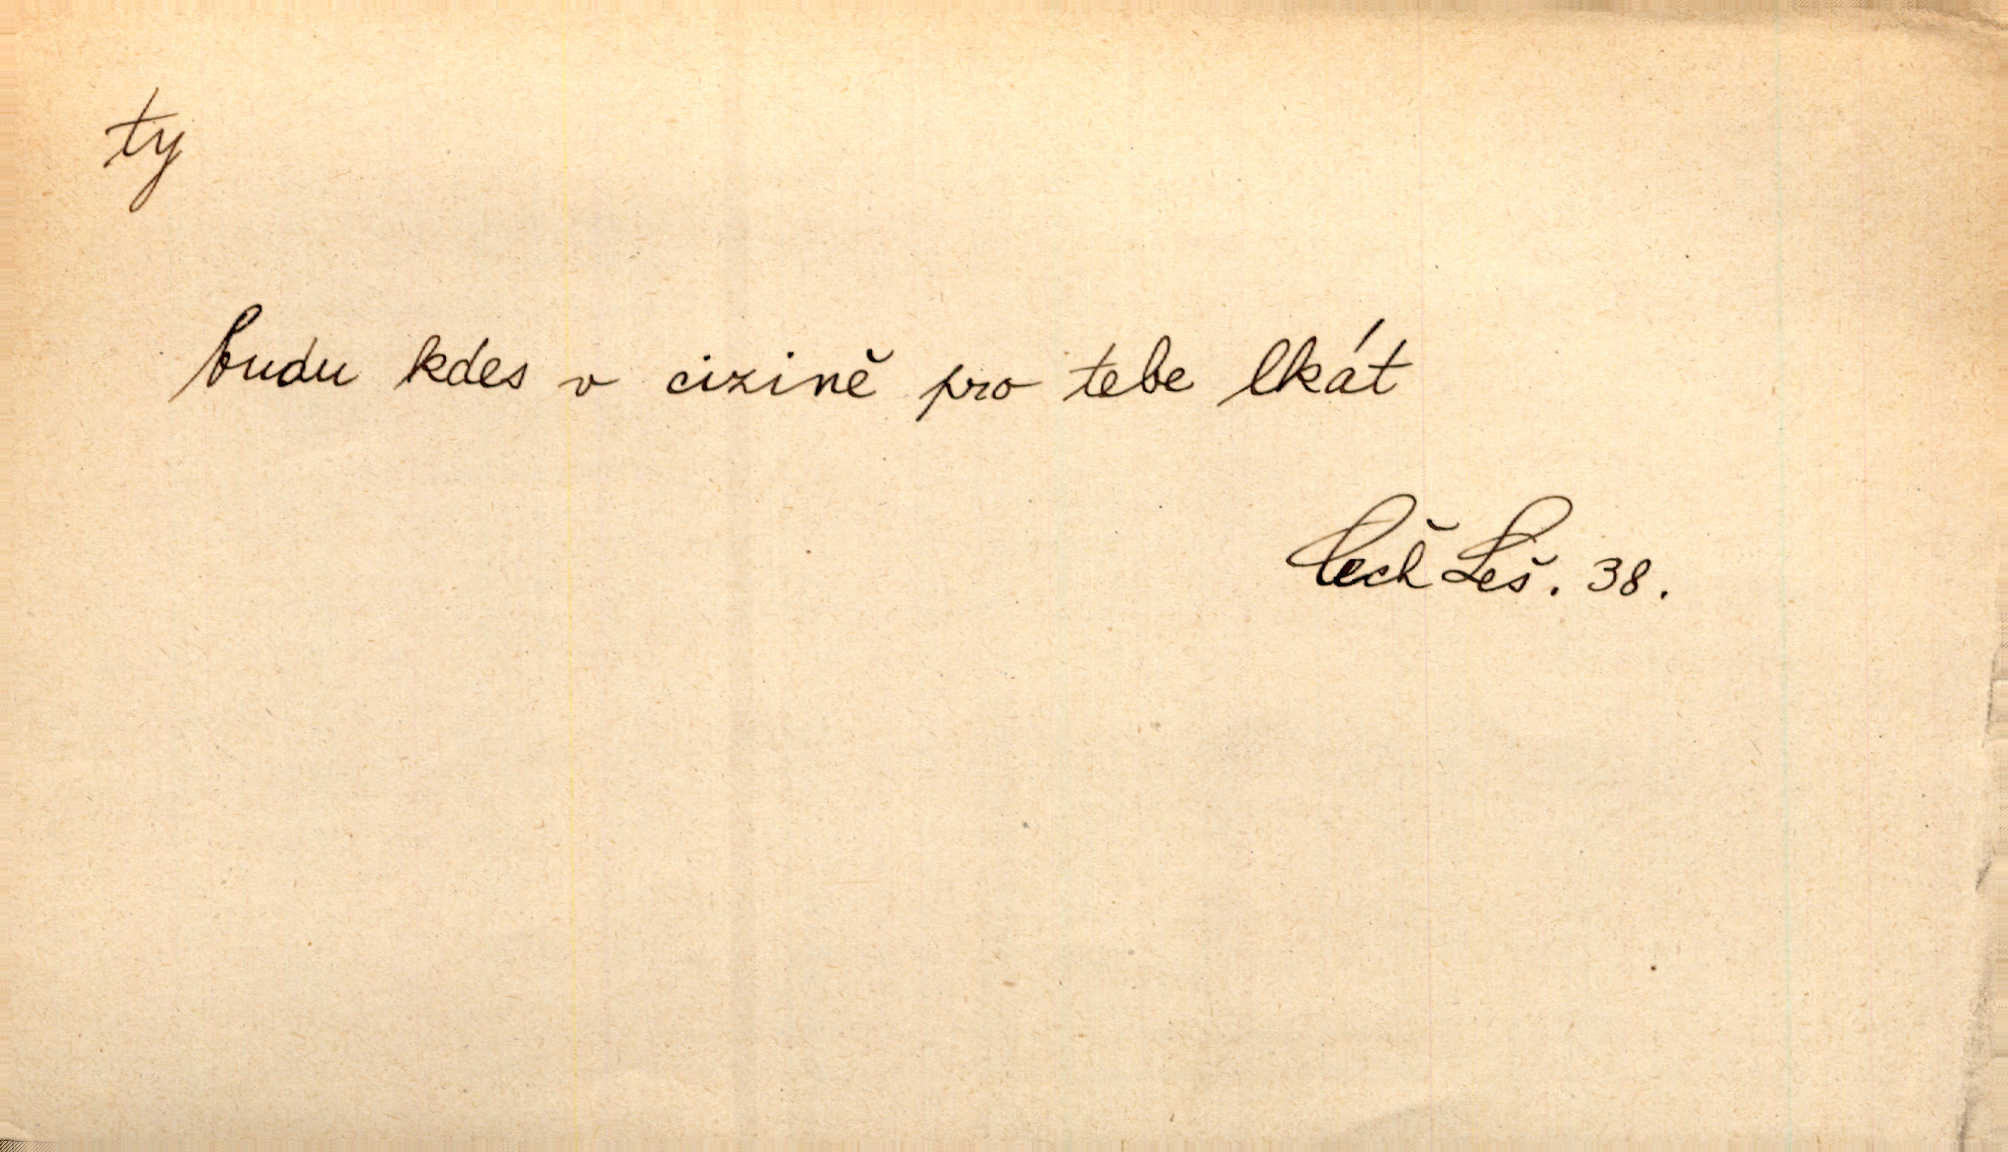 ty
budu kdes v cizině pro tebe lkát
Čech Leš. 38.